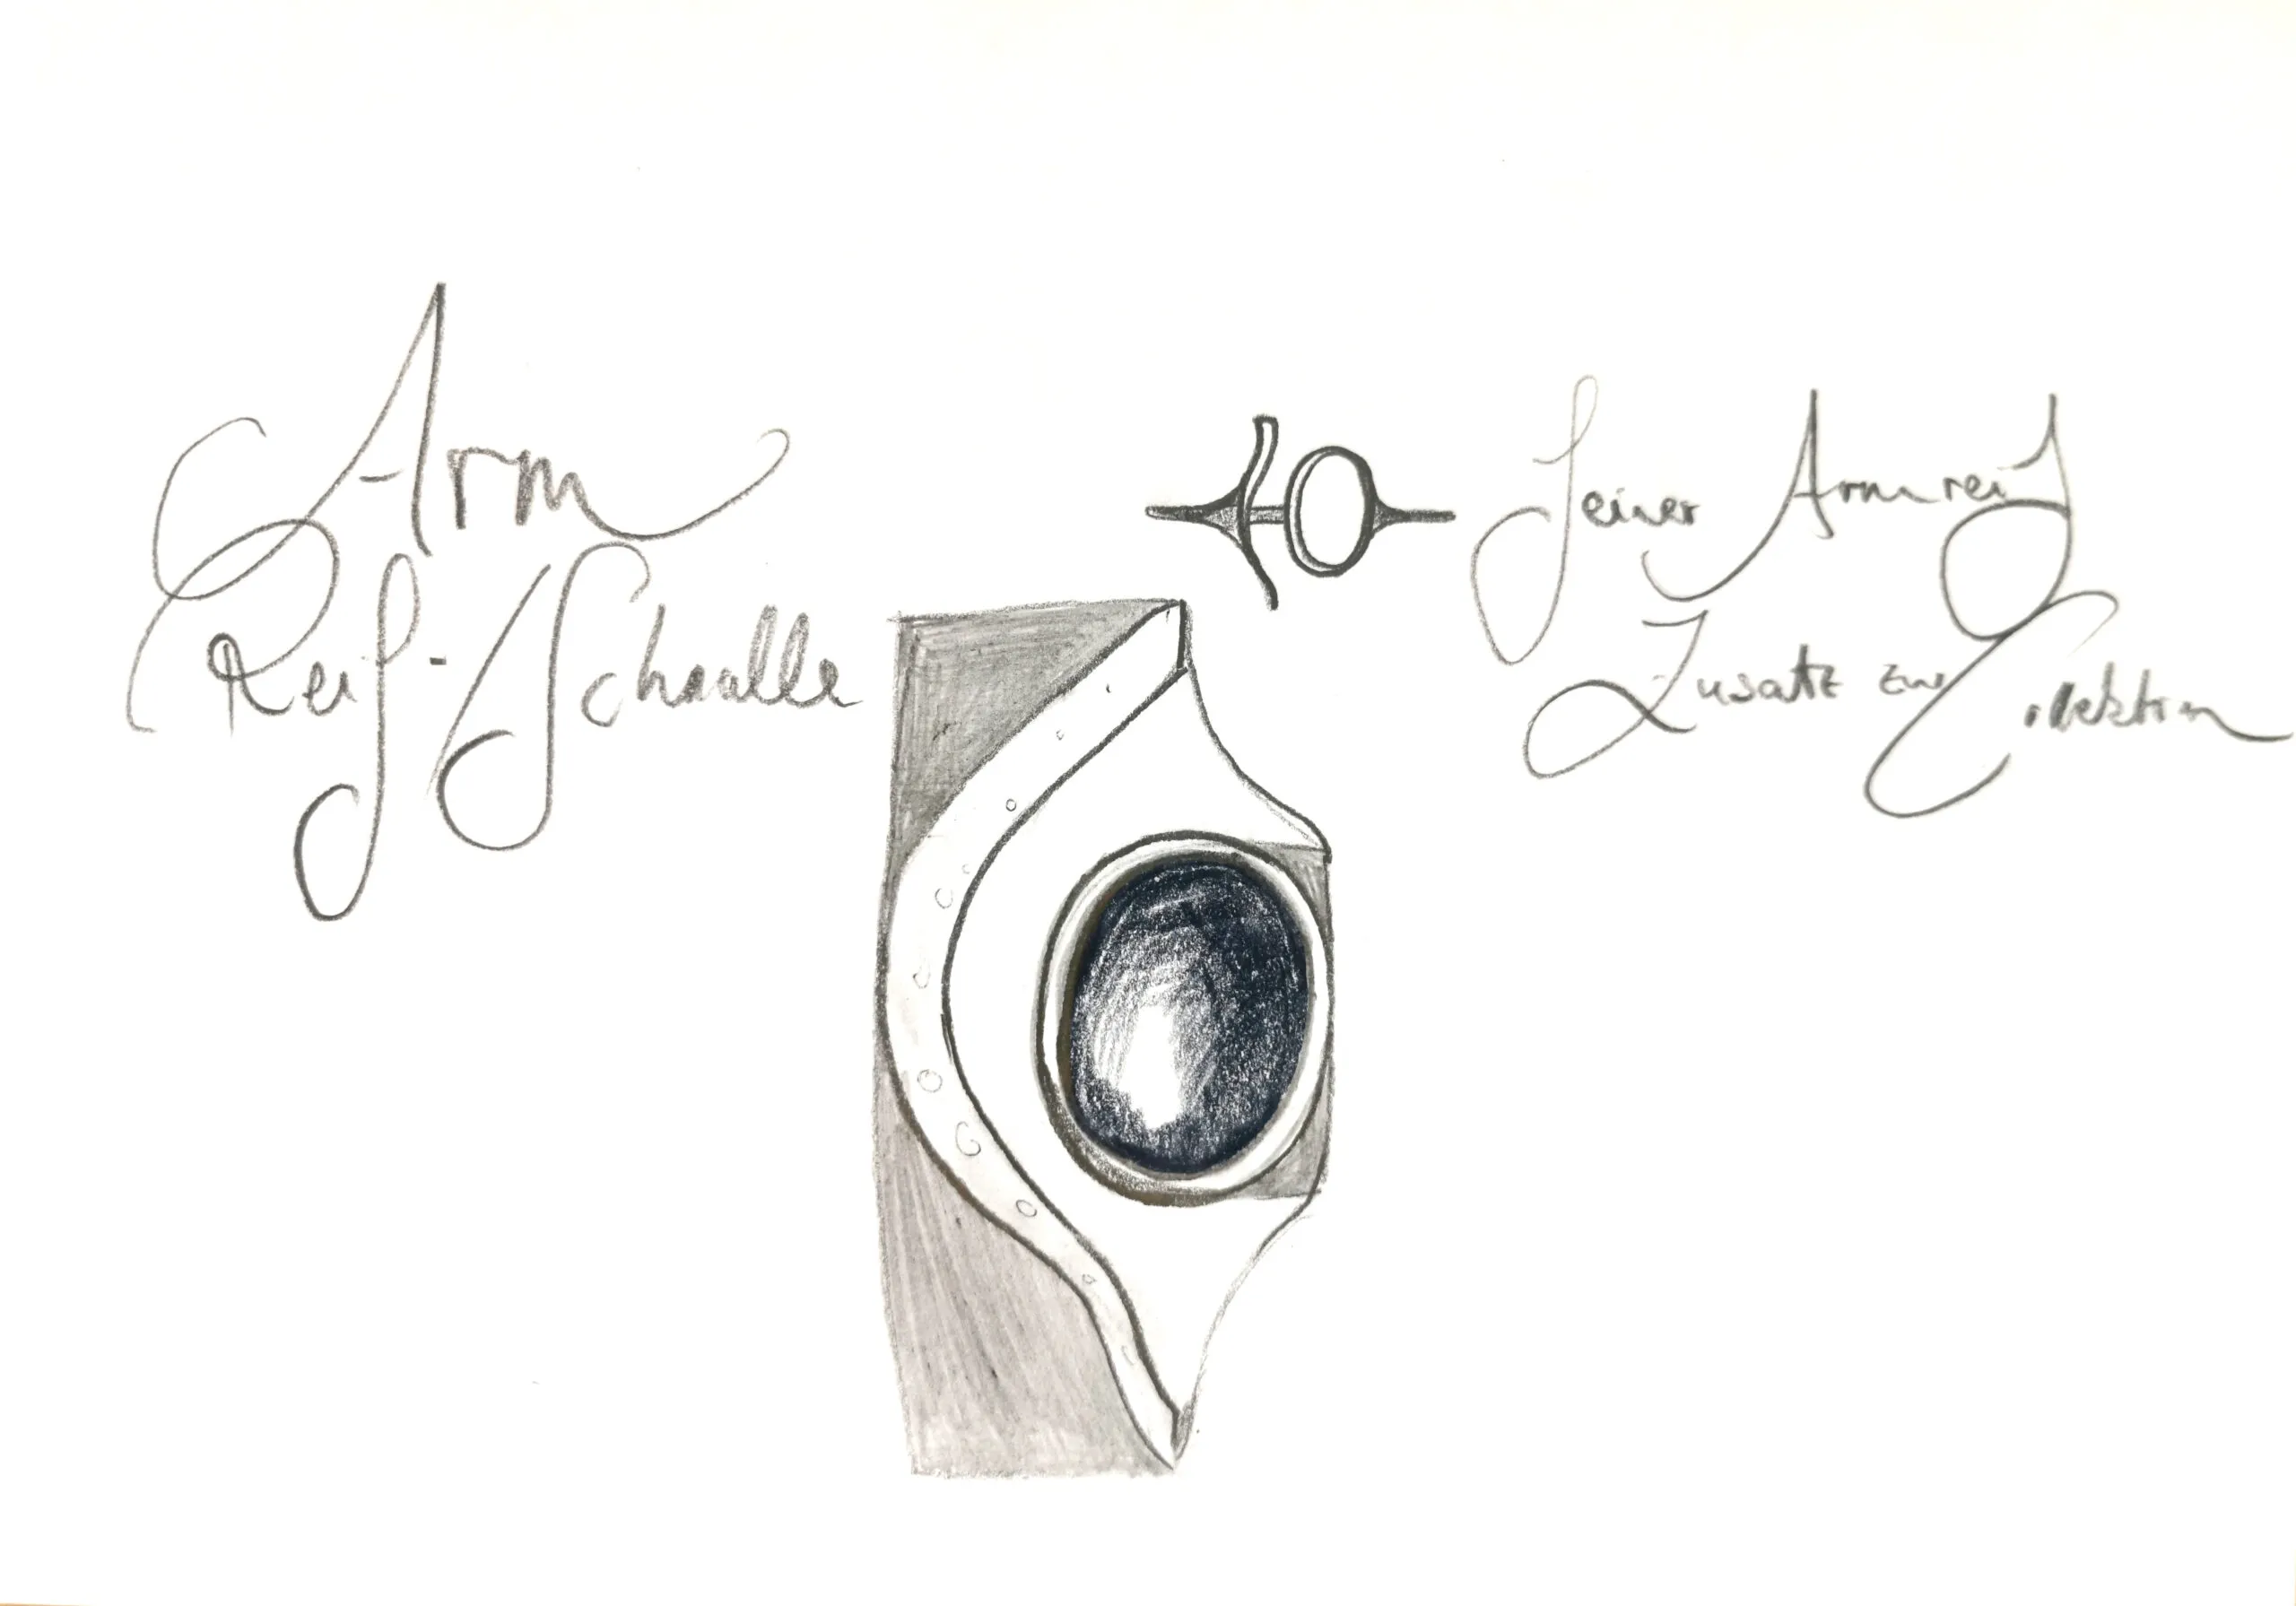 Arm
Reif-Schnalle
feiner Armreif
Zusatz zur Collektion